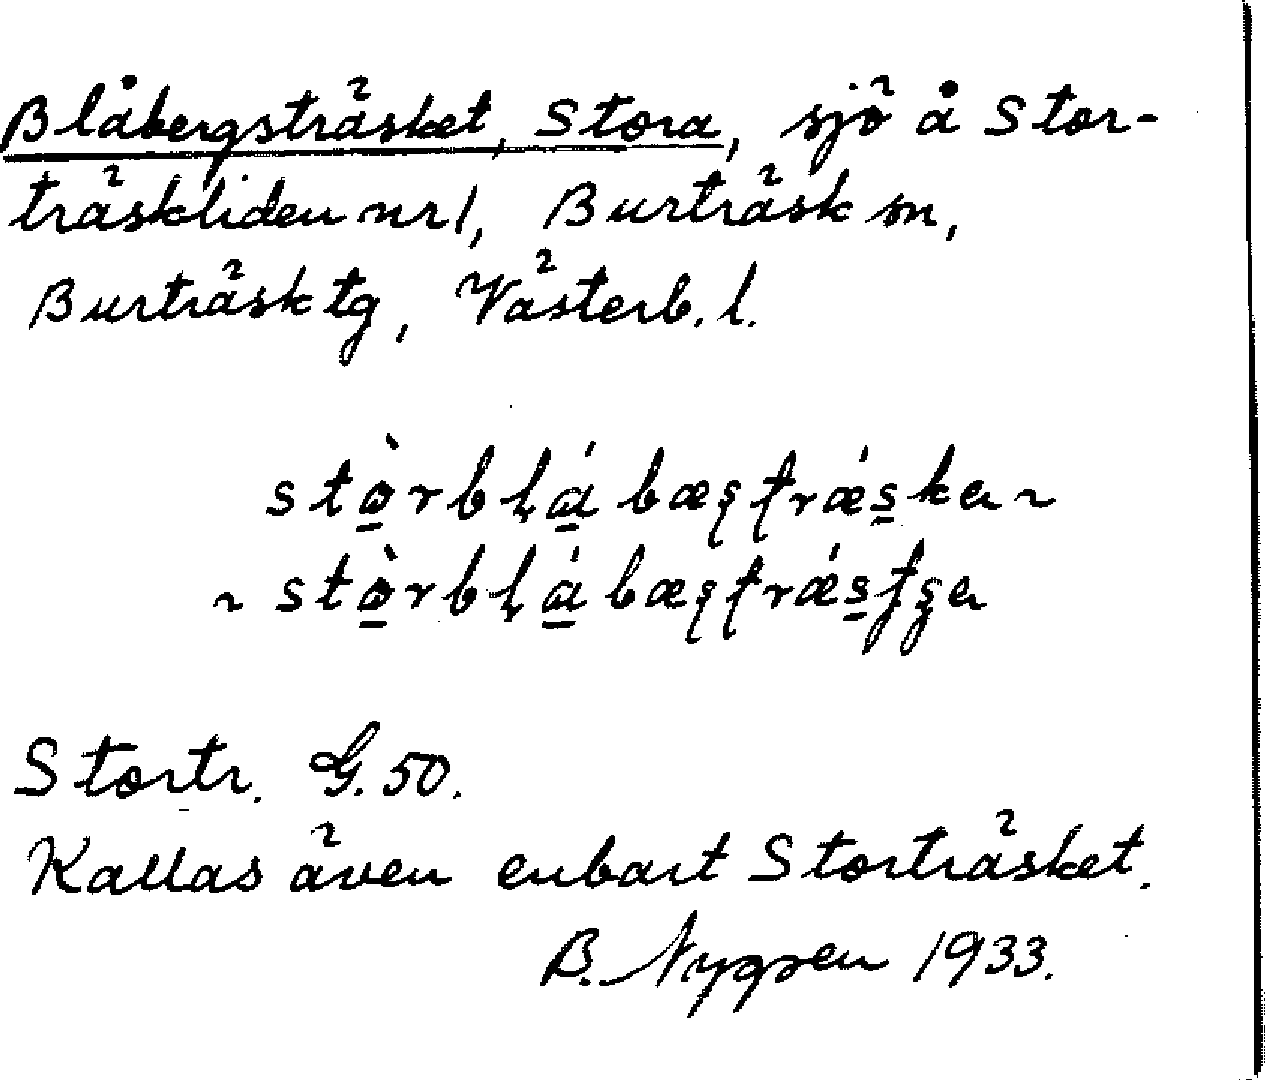 Blåbergsträsket, Stora, sjö å Stor-
träskliden nr 1, Burträsk sn,
Burträsk tg, Västerb. l.
stò̠rbḷá̠bæʂʈrǽs̠ka ~
~ stò̠rbḷá̠bæʂʈrǽs̠ʈʂa
Stortr. G. 50.
Kallas även enbart Storträsket.
B. Nygren 1933.